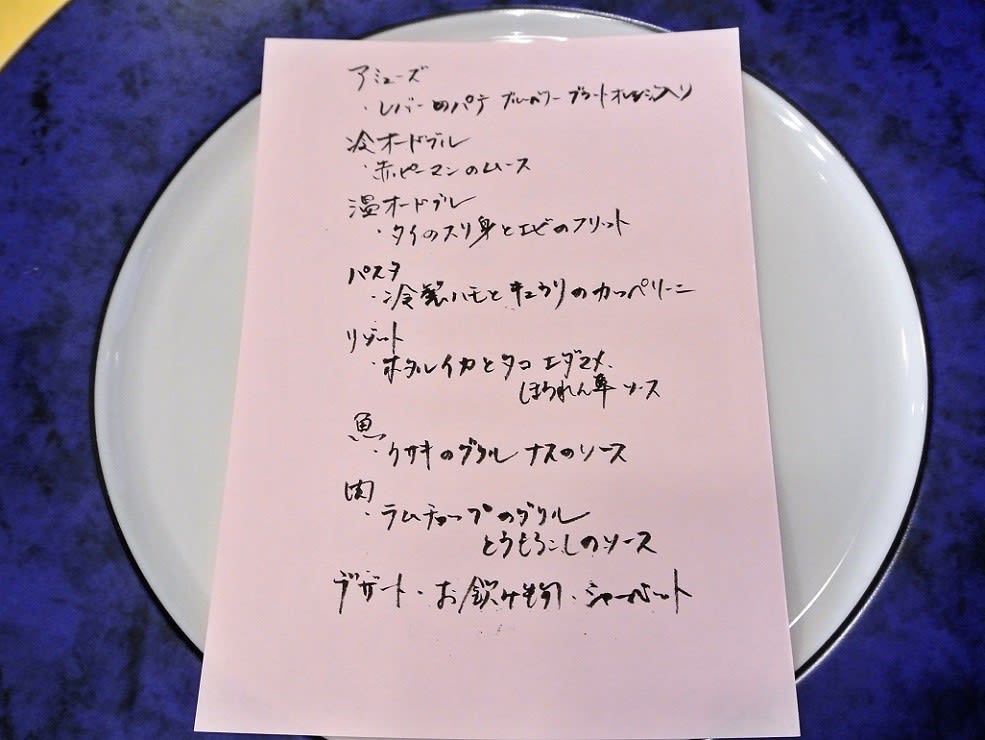 アミューズ
・レバーのパテ ブルーベリー ブラッドオレンジ入り
冷オードブル
・赤ピーマンのムース
温オードブル
・タイのスリ身とエビのフリット
パスタ
・冷製ハモとキュウリのカッペリーニ
リゾット
・ホタルイカとタコ エダマメ、
ほうれん草 ソース
魚
・イサキのグリル ナスのソース
肉
・ラムチョップのグリル
とうもろこしのソース
デザート・お飲み物・シャーベット